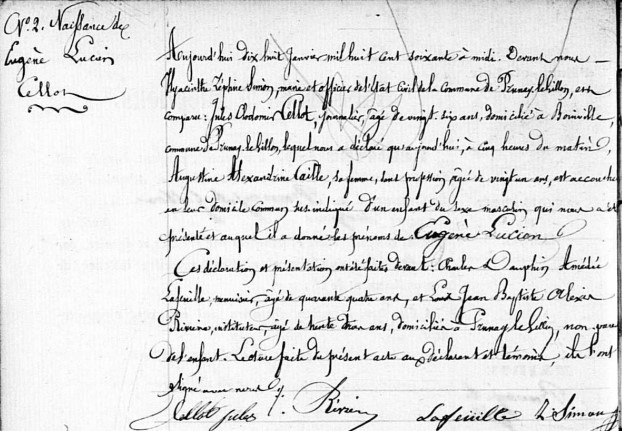 N° 2. Naissance de
Eugène Lucien
Cellot
Aujourd'hui dix huit Janvier mil huit cent soixante à midi. Devant nous
Hyacinthe Zéphire Simon, maire et officier de l'Etat Civil de la Commune de Prunay le Gillon, est
comparu : Jules Clodomir Cellot, journalier, âgé de vingt six ans, domicilié à
commune de Prunay le Gillon, lequel nous a déclaré qu'aujourd'hui, à cinq heures du matin,
Augustine Alexandrine Caillé, sa femme, sans profession, âgée de vingt un ans, est accouchée
en leur domicile commun sus indiqué d'un enfant du sexe masculin qui nous a été
présenté et auquel il a donné les prénoms de Eugène Lucien
Ces déclaration et présentation ont été faites devant : Charles Dauphin Amédée
Lafeuille menuisier, âgé de quarante quatre ans, et Louis Jean Baptiste Alexis
instituteur, âgé de trente ans, domiciliés à Prunay le Gillon, non
de l'enfant. Lecture faite du présent acte aux déclarant et témoins, ils l'ont
signé avec nous
Cellot jules Lafeuille Simon